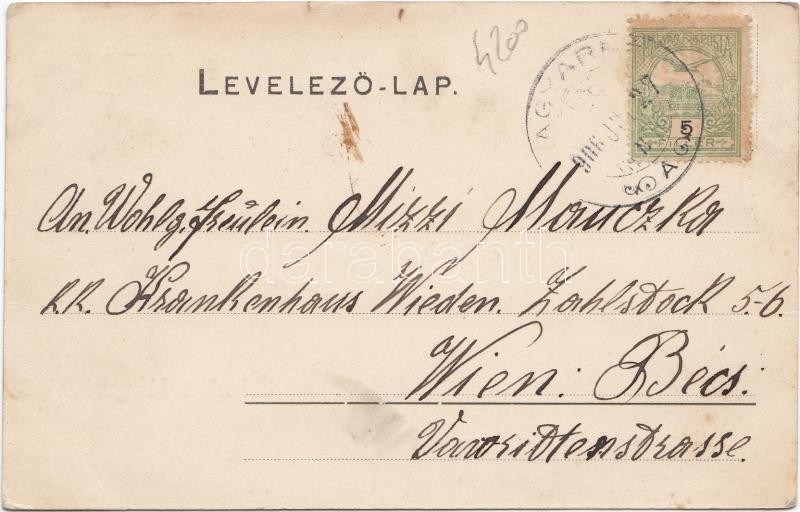 4200
LEVELEZŐ-LAP.
MAGYAR KIR. POSTA
5
FILLÉR
An. Wohlg. Fräulein. Mizzi Mauczka
k.k. Krankenhaus Wieden. Zahlstock 5-6.
Wien: Bécs:
Vavoridtenstrasse.
darabanth